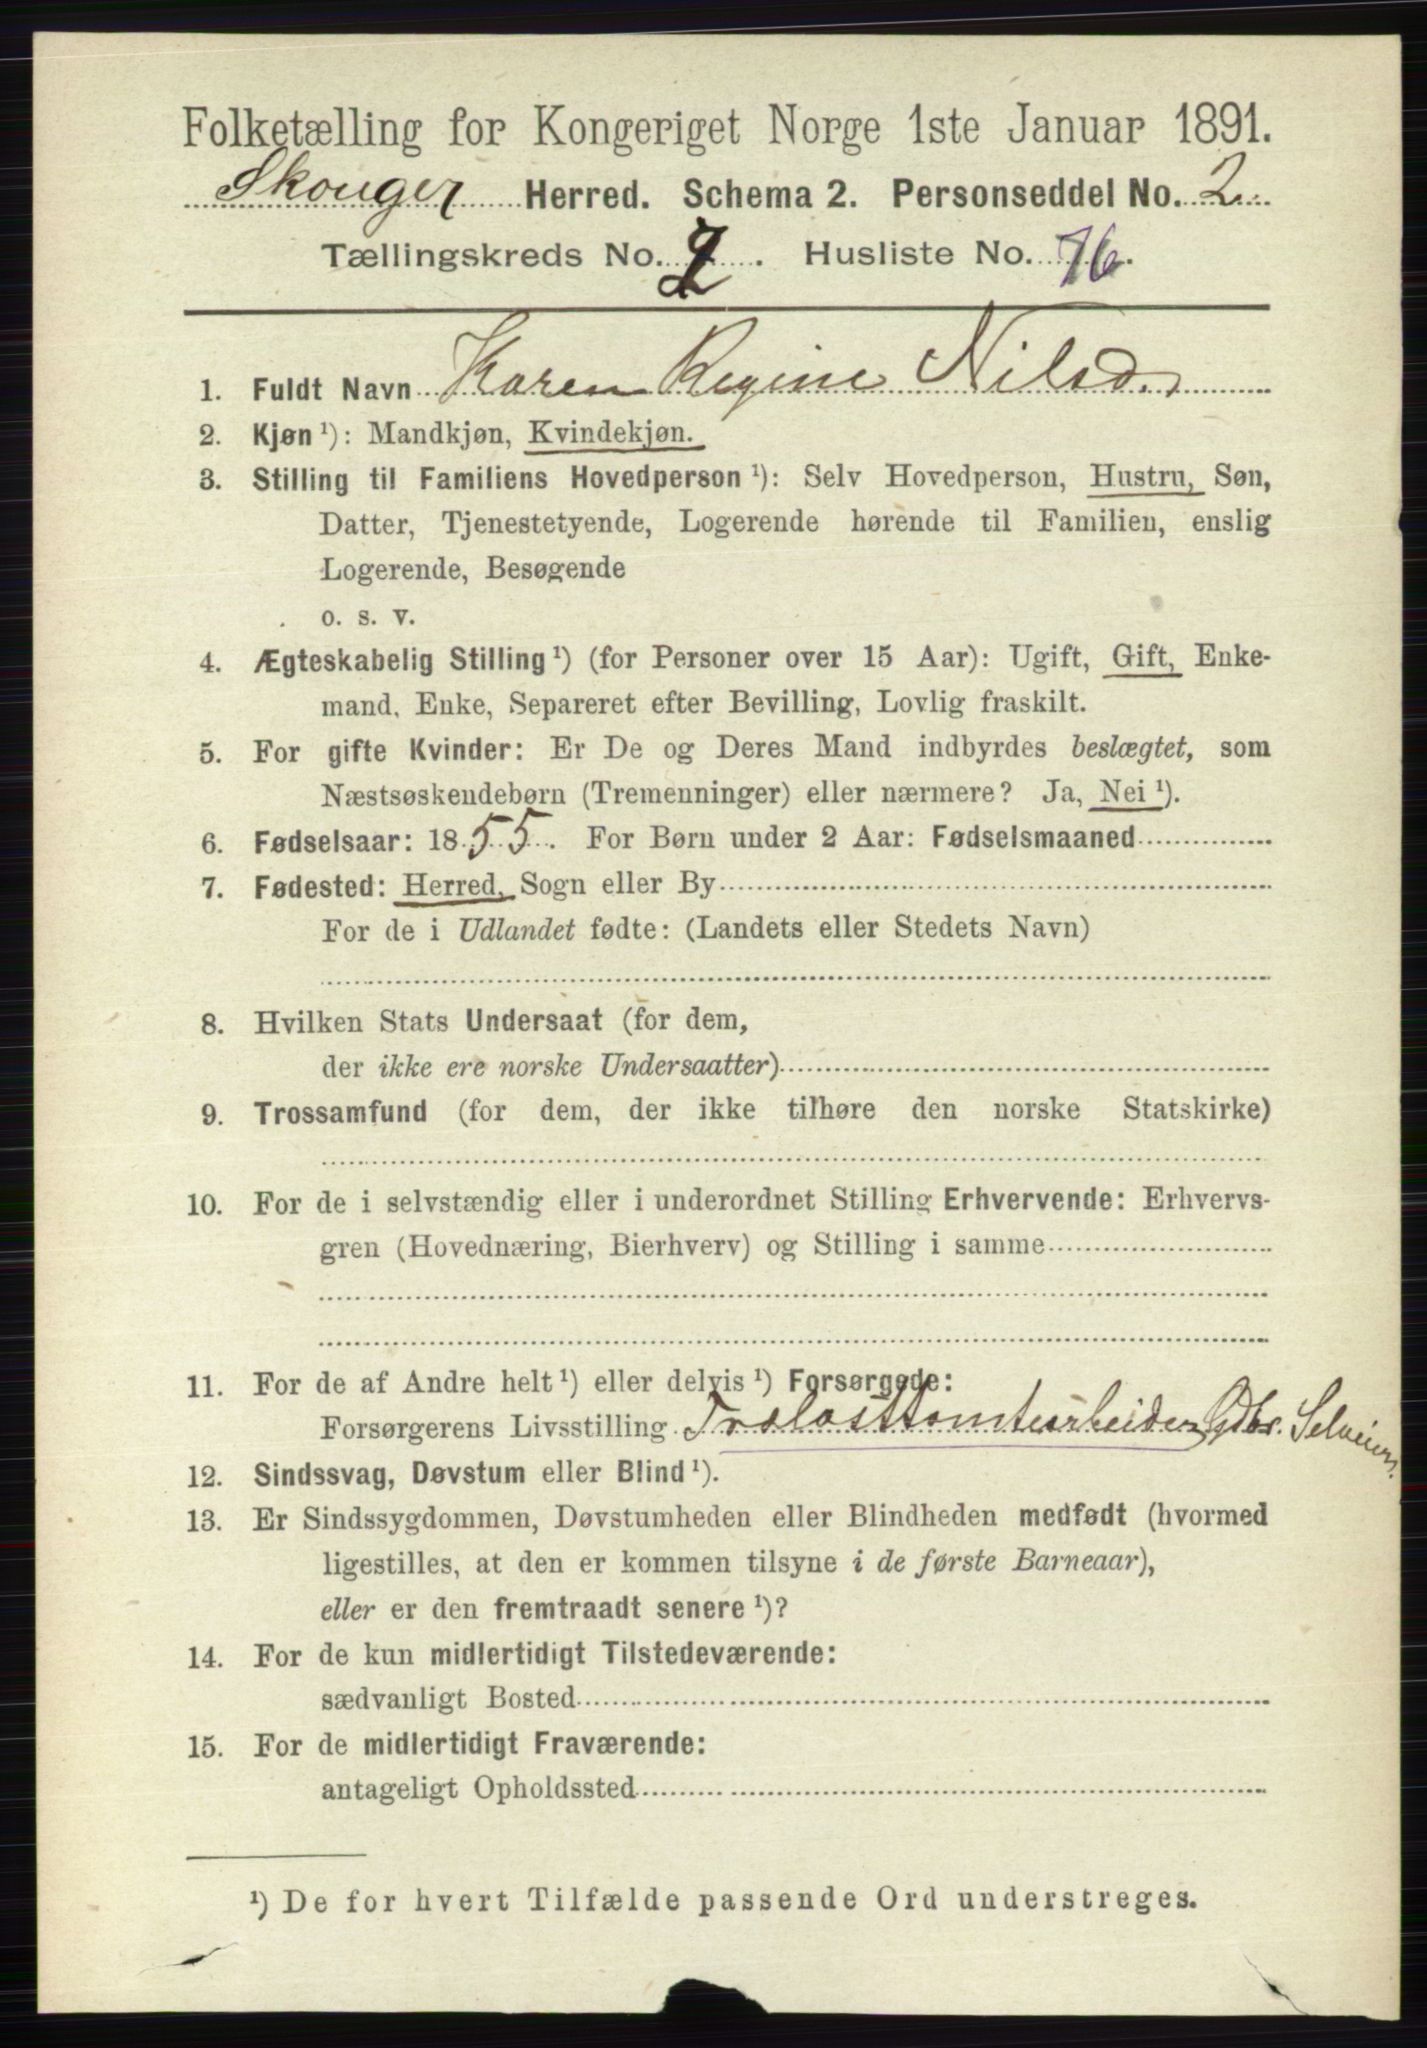 Folketælling for Kongeriget Norge 1ste Januar 1891.
Skouger Herred. Schema 2. Personseddel No. 2
Tællingskreds No. 2. Husliste No. 76.
1. Fuldt Navn Karen Regine Nilsd.
2. Kjøn ¹): Mandkjøn, Kvindekjøn.
3. Stilling til Familiens Hovedperson ¹): Selv Hovedperson, Hustru, Søn,
Datter, Tjenestetyende, Logerende hørende til Familien, enslig
Logerende, Besøgende
o. s. v.
4. Ægteskabelig Stilling ¹) (for Personer over 15 Aar): Ugift, Gift, Enke-
mand, Enke, Separeret efter Bevilling, Lovlig fraskilt.
5. For gifte Kvinder: Er De og Deres Mand indbyrdes beslægtet, som
Næstsøskendebørn (Tremenninger) eller nærmere? Ja, Nei ¹).
6. Fødselsaar: 1855. For Børn under 2 Aar: Fødselsmaaned
7. Fødested: Herred, Sogn eller By
For de i Udlandet fødte: (Landets eller Stedets Navn)
8. Hvilken Stats Undersaat (for dem,
der ikke ere norske Undersaatter)
9. Trossamfund (for dem, der ikke tilhøre den norske Statskirke)
10. For de i selvstændig eller i underordnet Stilling Erhvervende: Erhvervs-
gren (Hovednæring, Bierhverv) og Stilling i samme
11. For de af Andre helt ¹) eller delvis ¹) Forsørgede:
Forsørgerens Livsstilling Trælasttomtearbeider, Gdbr. Selveier.
12. Sindssvag, Døvstum eller Blind ¹).
13. Er Sindssygdommen, Døvstumheden eller Blindheden medfødt (hvormed
ligestilles, at den er kommen tilsyne i de første Barneaar),
eller er den fremtraadt senere ¹)?
14. For de kun midlertidigt Tilstedeværende:
sædvanligt Bosted
15. For de midlertidigt Fraværende:
antageligt Opholdssted
¹) De for hvert Tilfælde passende Ord understreges.